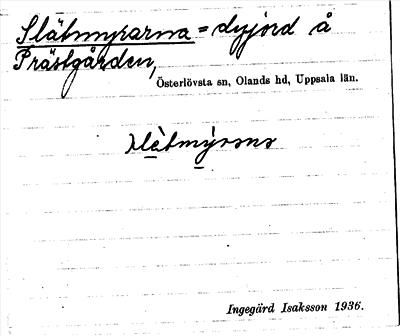 Slätmyrarna = dyjord å
Prästgården,
Österlövsta sn, Olands hd, Uppsala län.
slètmýrana
Ingegärd Isaksson 1936.